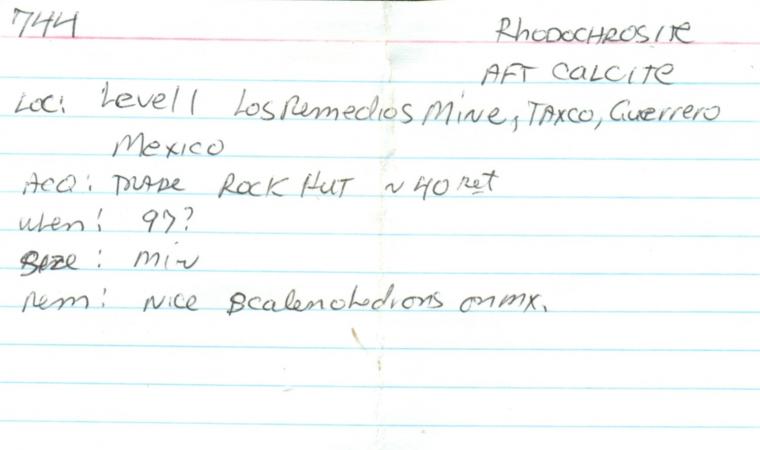 744
Rhodochrosite
AFT Calcite
Loc: Level 1 Los Remedios Mine, Taxco, Guerrero
Mexico
Acq: Trade Rock Hut ~ 40 ret
When: 97?
Size: Min
Rem: Nice Scalenohedrons on mx.